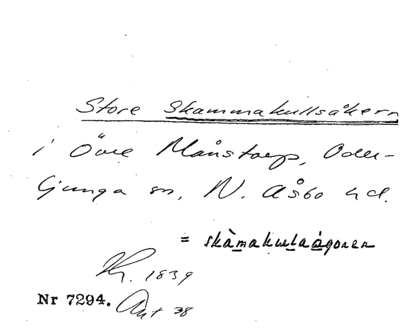 Store Skammakullsåkern
i Övre Månstorp, Oder-
ljunga sn, N. Åsbo hd.
= skàmakulaágoren
1839
Nr 7294. Ant 38